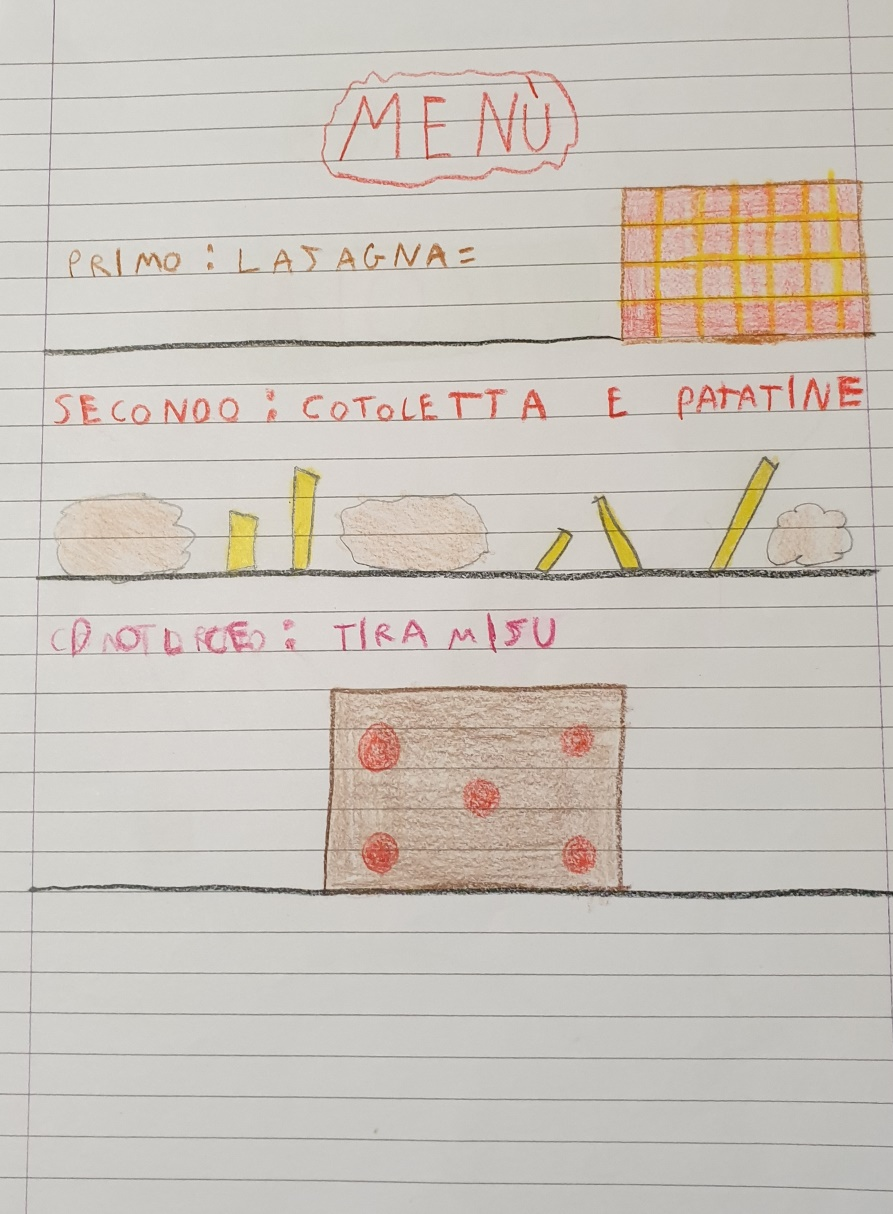 MENÙ
PRIMO : LASAGNA =
SECONDO : COTOLETTA E PATATINE
: TIRAMISU